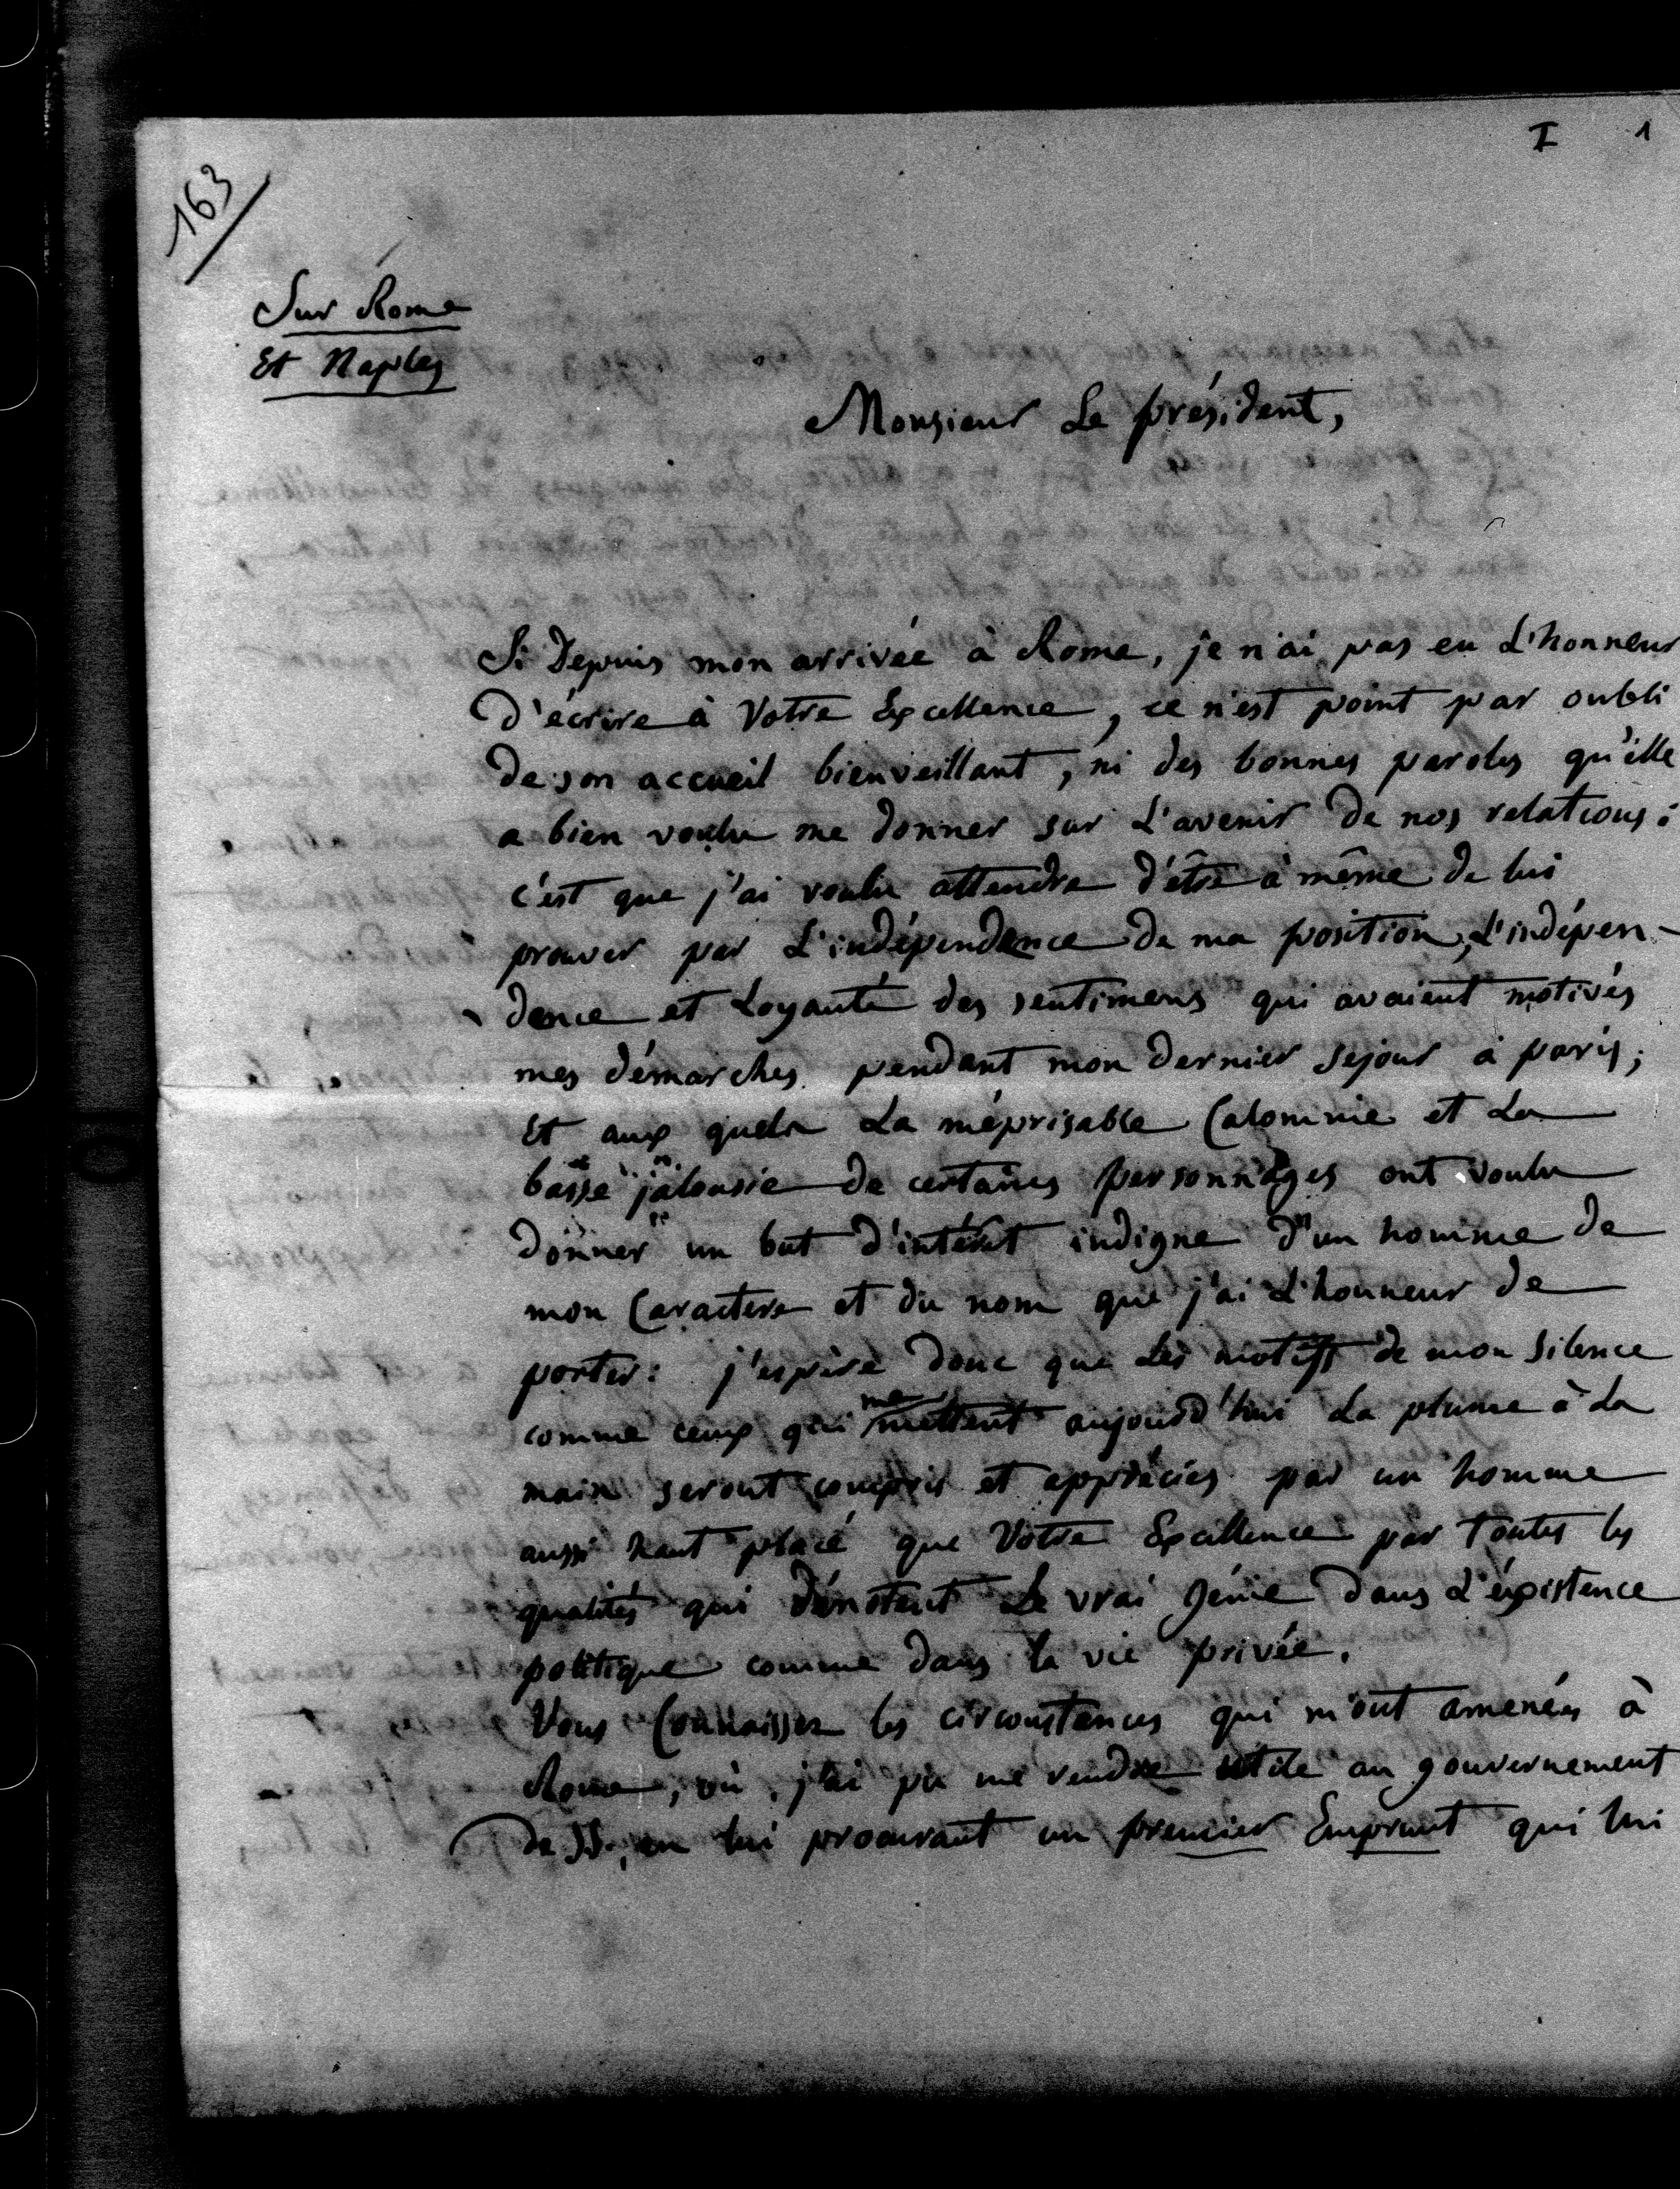 I 1
163
Sur Rome
Et Naples
Monsieur Le président,
Si Depuis mon arrivée à Rome, je n'ai pas eu L'honneur
D'écrire à Votre Excellence, ce n'est point par oubli
De son accueil bienveillant, ni des bonnes paroles qu'elle
a bien voulu me donner sur L'avenir De nos relations:
c'est que j'ai voulu attendre d'être à même De lui
prouver par L'indépendance De ma position, L'indépen-
dence et Loyauté des sentimens qui avaient motivés
mes démarches pendant mon dernier séjour à paris;
Et aux quels La méprisable Calomnie et La
basse jalousie De certains personnages ont voulu
Donner un but d'intérêt indigne d'un homme De
mon Caractère et du nom que j'ai L'honneur De
porter: j'espère donc que Les motifs de mon Silence
comme ceux qui me mettent aujourd'hui La plume à La
main seront compris et appréciés par un homme
aussi haut placé que Votre Excellence par toutes les
qualités qui dénotent Le vrai Génie Dans L'éxistence
politique comme dans la vie privée.
Vous Connaissez les circonstances qui m'ont amenés à
Rome, où j'ai pu me rendre utile au gouvernement
De SS. en lui procurant un premier Emprunt qui lui